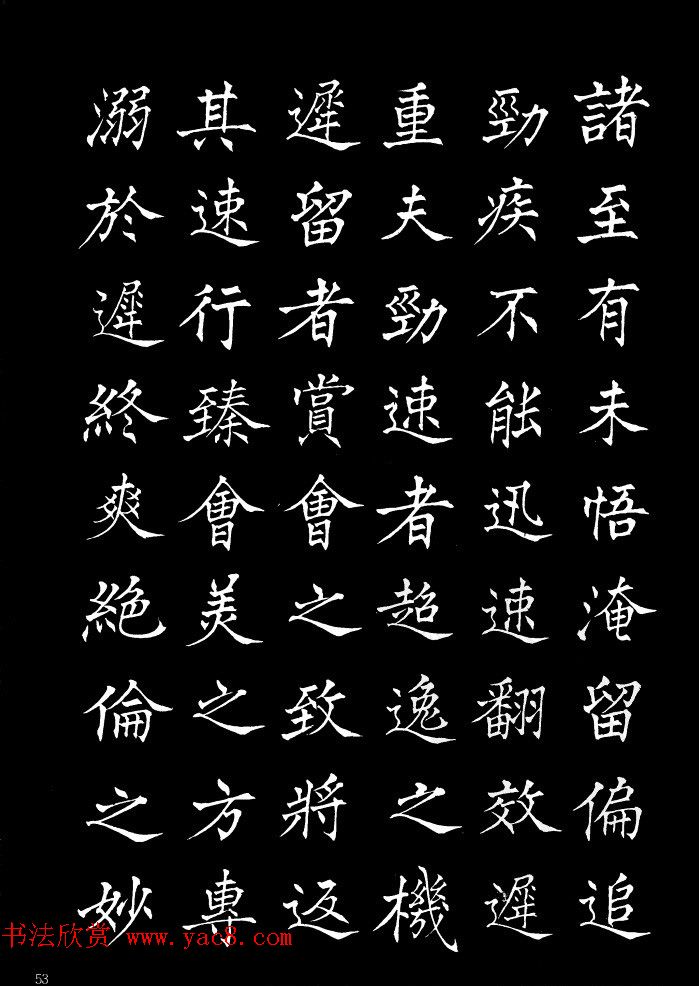 諸至有未悟淹留偏追
勁疾不能迅速翻效遲
重夫勁速者超逸之機
遲留者賞會之致將返
其速行臻會美之方專
溺於遲終爽絶倫之妙
书法欣赏 www.yac8.com
53